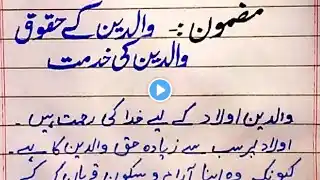 مضمون :- والدین کے حقوق
والدین کی خدمت
والدین اولاد کے لیے خدا کی رحمت ہیں۔
اولاد پر سب سے زیادہ حق والدین کا ہے۔
کیونکہ وہ اپنا آرام و سکون قربان کر کے